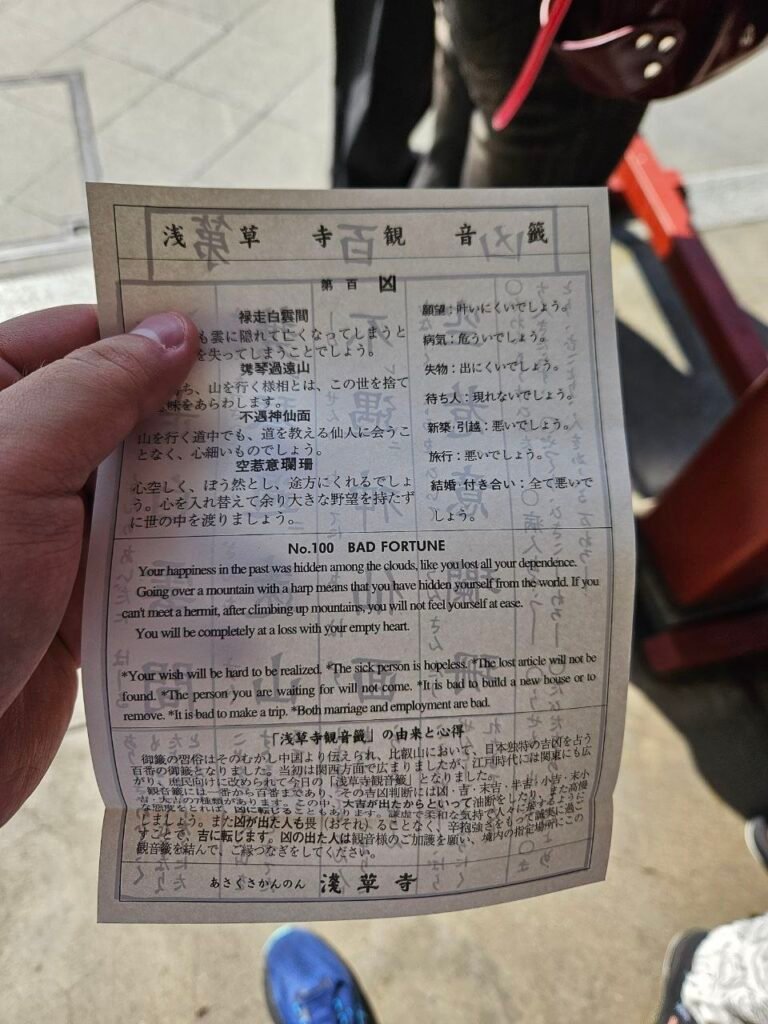 浅草寺観音籤
第百 凶
禄走白雲間
も雲に隠れて亡くなってしまうと
を失ってしまうことでしょう。
琴過遠山
ち、山を行く様相とは、この世を捨て
味をあらわします。
不遇神仙面
山を行く道中でも、道を教える仙人に会うこ
となく、心細いものでしょう。
空惹意瓓珊
心空しく、ぼう然とし、途方にくれるでしょ
う。心を入れ替えて余り大きな野望を持たず
に世の中を渡りましょう。
願望：叶いにくいでしょう。
病気：危ういでしょう。
失物：出にくいでしょう。
待ち人：現れないでしょう。
新築・引越：悪いでしょう。
旅行：悪いでしょう。
結婚・付き合い：全て悪いで
しょう。
No.100 BAD FORTUNE
Your happiness in the past was hidden among the clouds, like you lost all your dependence.
Going over a mountain with a harp means that you have hidden yourself from the world. If you
can't meet a hermit, after climbing up mountains, you will not feel yourself at ease.
You will be completely at a loss with your empty heart.
*Your wish will be hard to be realized. *The sick person is hopeless. *The lost article will not be
found. *The person you are waiting for will not come. *It is bad to build a new house or to
remove. *It is bad to make a trip. *Both marriage and employment are bad.
「浅草寺観音籤」の由来と心得
御籤の習俗はそのむかし中国より伝えられ、比叡山において、日本独特の吉凶を占う
百番の御籤となりました。当初は関西方面で広まりましたが、江戸時代には関東にも広
がり、庶民向けに改められて今日の「浅草寺観音籤」となりました。
観音籤には一番から百番まであり、その吉凶判断には凶・吉・末吉・半吉・小吉・末小
吉・大吉の7種類があります。この中、大吉が出たからといって油断をしたり、また高慢
な態度をとれば、凶に転じることもあります。謙虚で柔和な気持で人々に接するように
しましょう。また凶が出た人も畏（おそれ）ることなく、辛抱強さをもって誠実に過ご
すことで、吉に転じます。凶の出た人は観音様のご加護を願い、境内の指定場所にこの
観音籤を結んで、ご縁つなぎをしてください。
あさくさかんのん 淺草寺